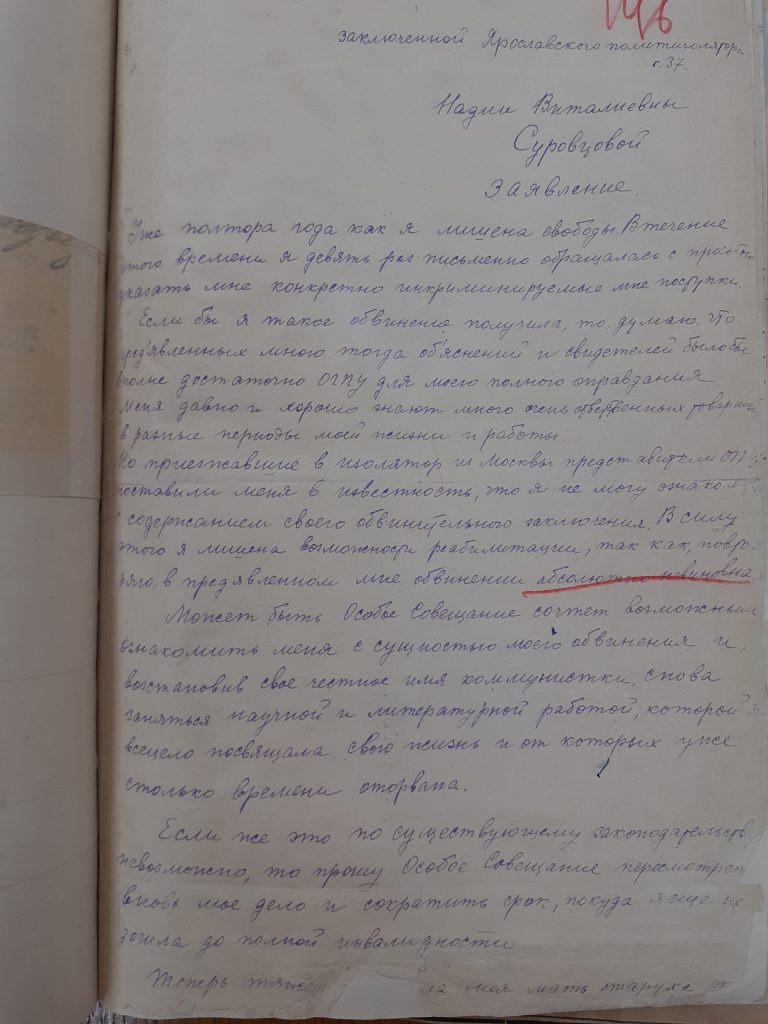 146
заключенной Ярославского политизолятора
к. 37.
Надии Виталиевны
Суровцовой
Заявление.
Уже полтора года как я лишена свободы. В течение
этого времени я девять раз письменно обращалась с просьбой
указать мне конкретно инкриминируемые мне поступки.
Если бы я такое обвинение получила, то, думаю, что
пред'явленных мною тогда об'яснений и свидетелей было бы
вполне достаточно ОГПУ для моего полного оправдания.
Меня давно и хорошо знают много очень ответственных товарищей
в разные периоды моей жизни и работы.
Но приезжавшие в изолятор из Москвы представители
поставили меня в известность, что я не могу ознаком
с содержанием своего обвинительного заключения. В силу
этого я лишена возможности реабилитации, так как, повто-
ряю, в предявленном мне обвинении абсолютно невиновна.
Может быть Особое Совещание сочтет возможным
ознакомить меня с сущностью моего обвинения и,
возстановив свое честное имя коммунистки, снова
заняться научной и литературной работой, которой я
всецело посвящала свою жизнь и от которых уже
столько времени оторвана.
Если же это по существующему законодательств
невозможно, то прошу Особое Совещание пересмотреть
вновь мое дело и сократить срок, покуда я еще не
дошла до полной инвалидности.
Теперь тяже ла моя мать старуха